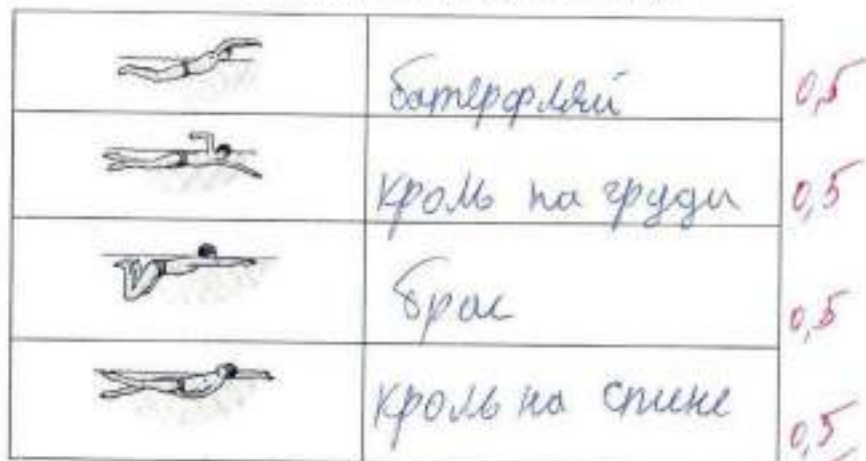 батерфляй 0,5
кроль на груди 0,5
брас 0,5
кроль на спине 0,5